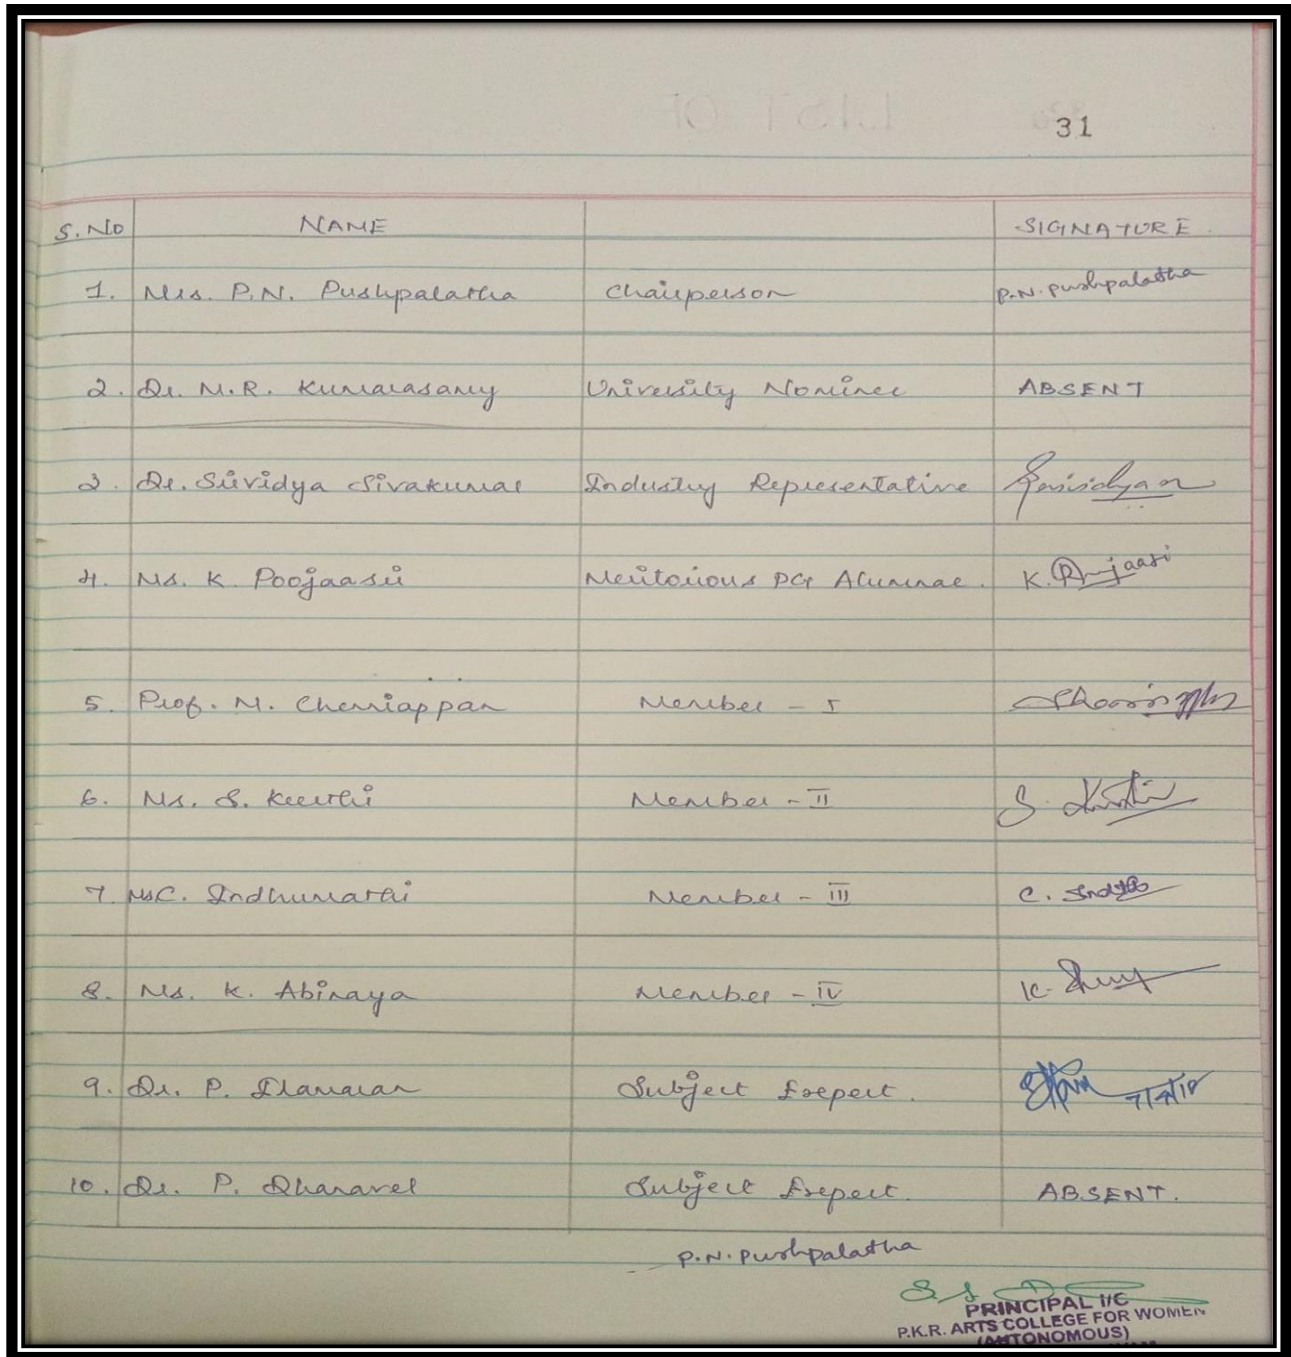 31
S.No NAME SIGNATURE.
1. Mrs. P.N. Pushpalatha Chairperson P.N. Pushpalatha
2. Dr. M.R. Kumarasamy University Nominee ABSENT
3. Dr. Srividya Sivakumar Industry Representative
4. Ms. K. Poojaasri Meritorious PG Alumnae. K. Poojaasri
5. Prof. M. Chenniappan Member - I
6. Ms. S. Keerthi Member - II S. Keerthi
7. Ms C. Indhumathi Member - III C. Indhu
8. Ms. K. Abinaya Member - IV K.
9. Dr. P. Elanaran Subject Expert.
10. Dr. P. Dhanavel Subject Expert. ABSENT.
P.N. Pushpalatha
PRINCIPAL I/C
P.K.R. ARTS COLLEGE FOR WOMEN
(AUTONOMOUS)